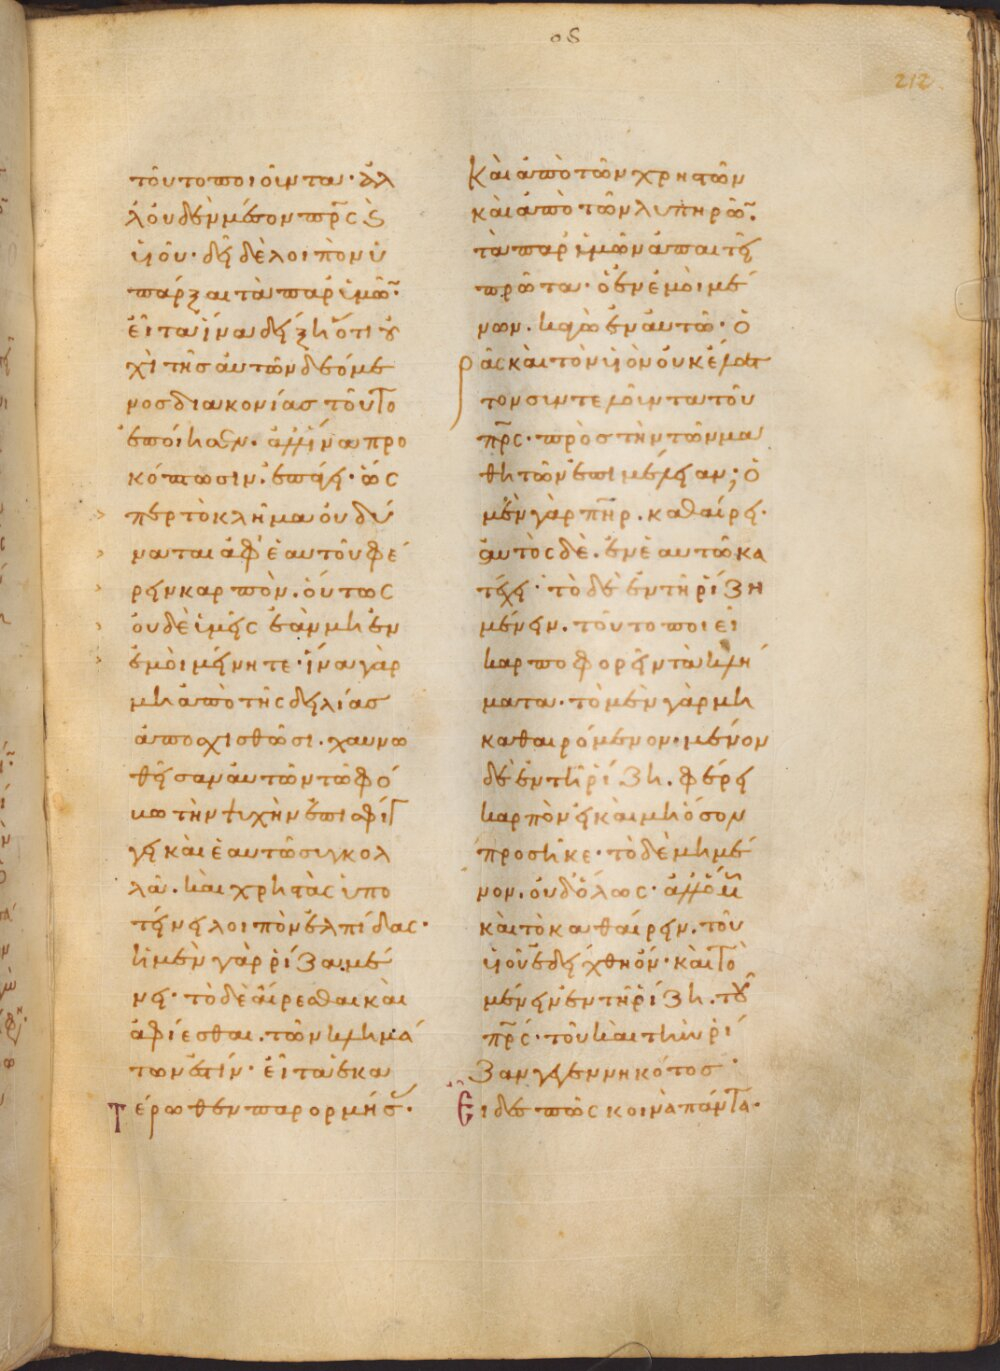 οϛ
212
τοῦτο ποιοῦντα· ἀλ
λ' οὐδὲν μέσον πρ̅ς ϗ
υἱοῦ· δεῖ δὲ λοιπὸν ὑ
πάρξαι τὰ παρ' ὑμῶ·
εἶτα ἵνα δείξη ὅτι οὐ
χὶ τῆς αὐτῶν δεόμε
νος διακονίας τοῦτο
ἐποίησεν. ἀλλ' ἵνα προ
κόπτωσιν. ἐπάγει· ὥσ
περ τὸ κλῆμα οὐ δύ
ναται ἀφ' ἑαυτοῦ φέ
ρειν καρπὸν. οὕτως
οὐδὲ ὑμεῖς ἐὰν μὴ ἐν
ἐμοὶ μείνητε· ἵνα γὰρ
μὴ ἀπὸ τῆς δειλίας
ἀποσχισθῶσι. χαυνω
θεῖσαν αὐτῶν τῶ φό
βω τὴν ψυχὴν ἐπισφίγ
γει καὶ ἑαυτῶ συγκολ
λᾶ. καὶ χρηστὰς ὑπο
τείνει λοιπὸν ἐλπίδας·
ἡ μὲν γὰρ ῥίζα μέ
νει· τὸ δὲ αἴρεσθαι καὶ
ἀφίεσθαι. τῶν κλημά
των ἐστίν· εἶτα ἑκα
τέρωθεν παρορμήσας·
καὶ ἀπὸ τῶν χρηστῶν
καὶ ἀπὸ τῶν λυπηρῶ·
τὰ παρ' ἡμῶν ἀπαιτεῖ
πρῶτα· ὁ ἐν ἐμοὶ μέ
νων. κἀγὼ ἐν αὐτῶ· ὁ
ρᾶς καὶ τὸν υἱὸν οὐκ ἔλατ
τον συντελοῦντα τοῦ
πρ̅ς· πρὸς τὴν τῶν μα
θητῶν ἐπιμέλειαν; ὁ
μὲν γὰρ πη̅ρ. καθαίρει·
αὐτὸς δὲ. ἐν ἑαυτῶ κα
τέχει· τὸ δὲ ἐν τῆ ῥίζη
μένειν. τοῦτο ποιεῖ
καρποφορεῖν τὰ κλή
ματα· τὸ μὲν γὰρ μὴ
καθαιρόμενον. μένον
δὲ ἐν τῆ ῥίζη. φέρει
καρπὸν εἰ καὶ μὴ ὅσον
προσῆκε· τὸ δὲ μὴ μέ
νον. οὐδ' ὅλως· ἀλλ' ὅμ
καὶ τὸ καθαίρειν. τοῦ
υἱοῦ ἐδείχθη ὄν· καὶ τὸ
μένειν ἐν τῆ ῥίζη. τοῦ
πρ̅ς· τοῦ καὶ τὴν ῥί
ζαν γεγεννηκότος·
Εἶδες πῶς κοινὰ πάντα·